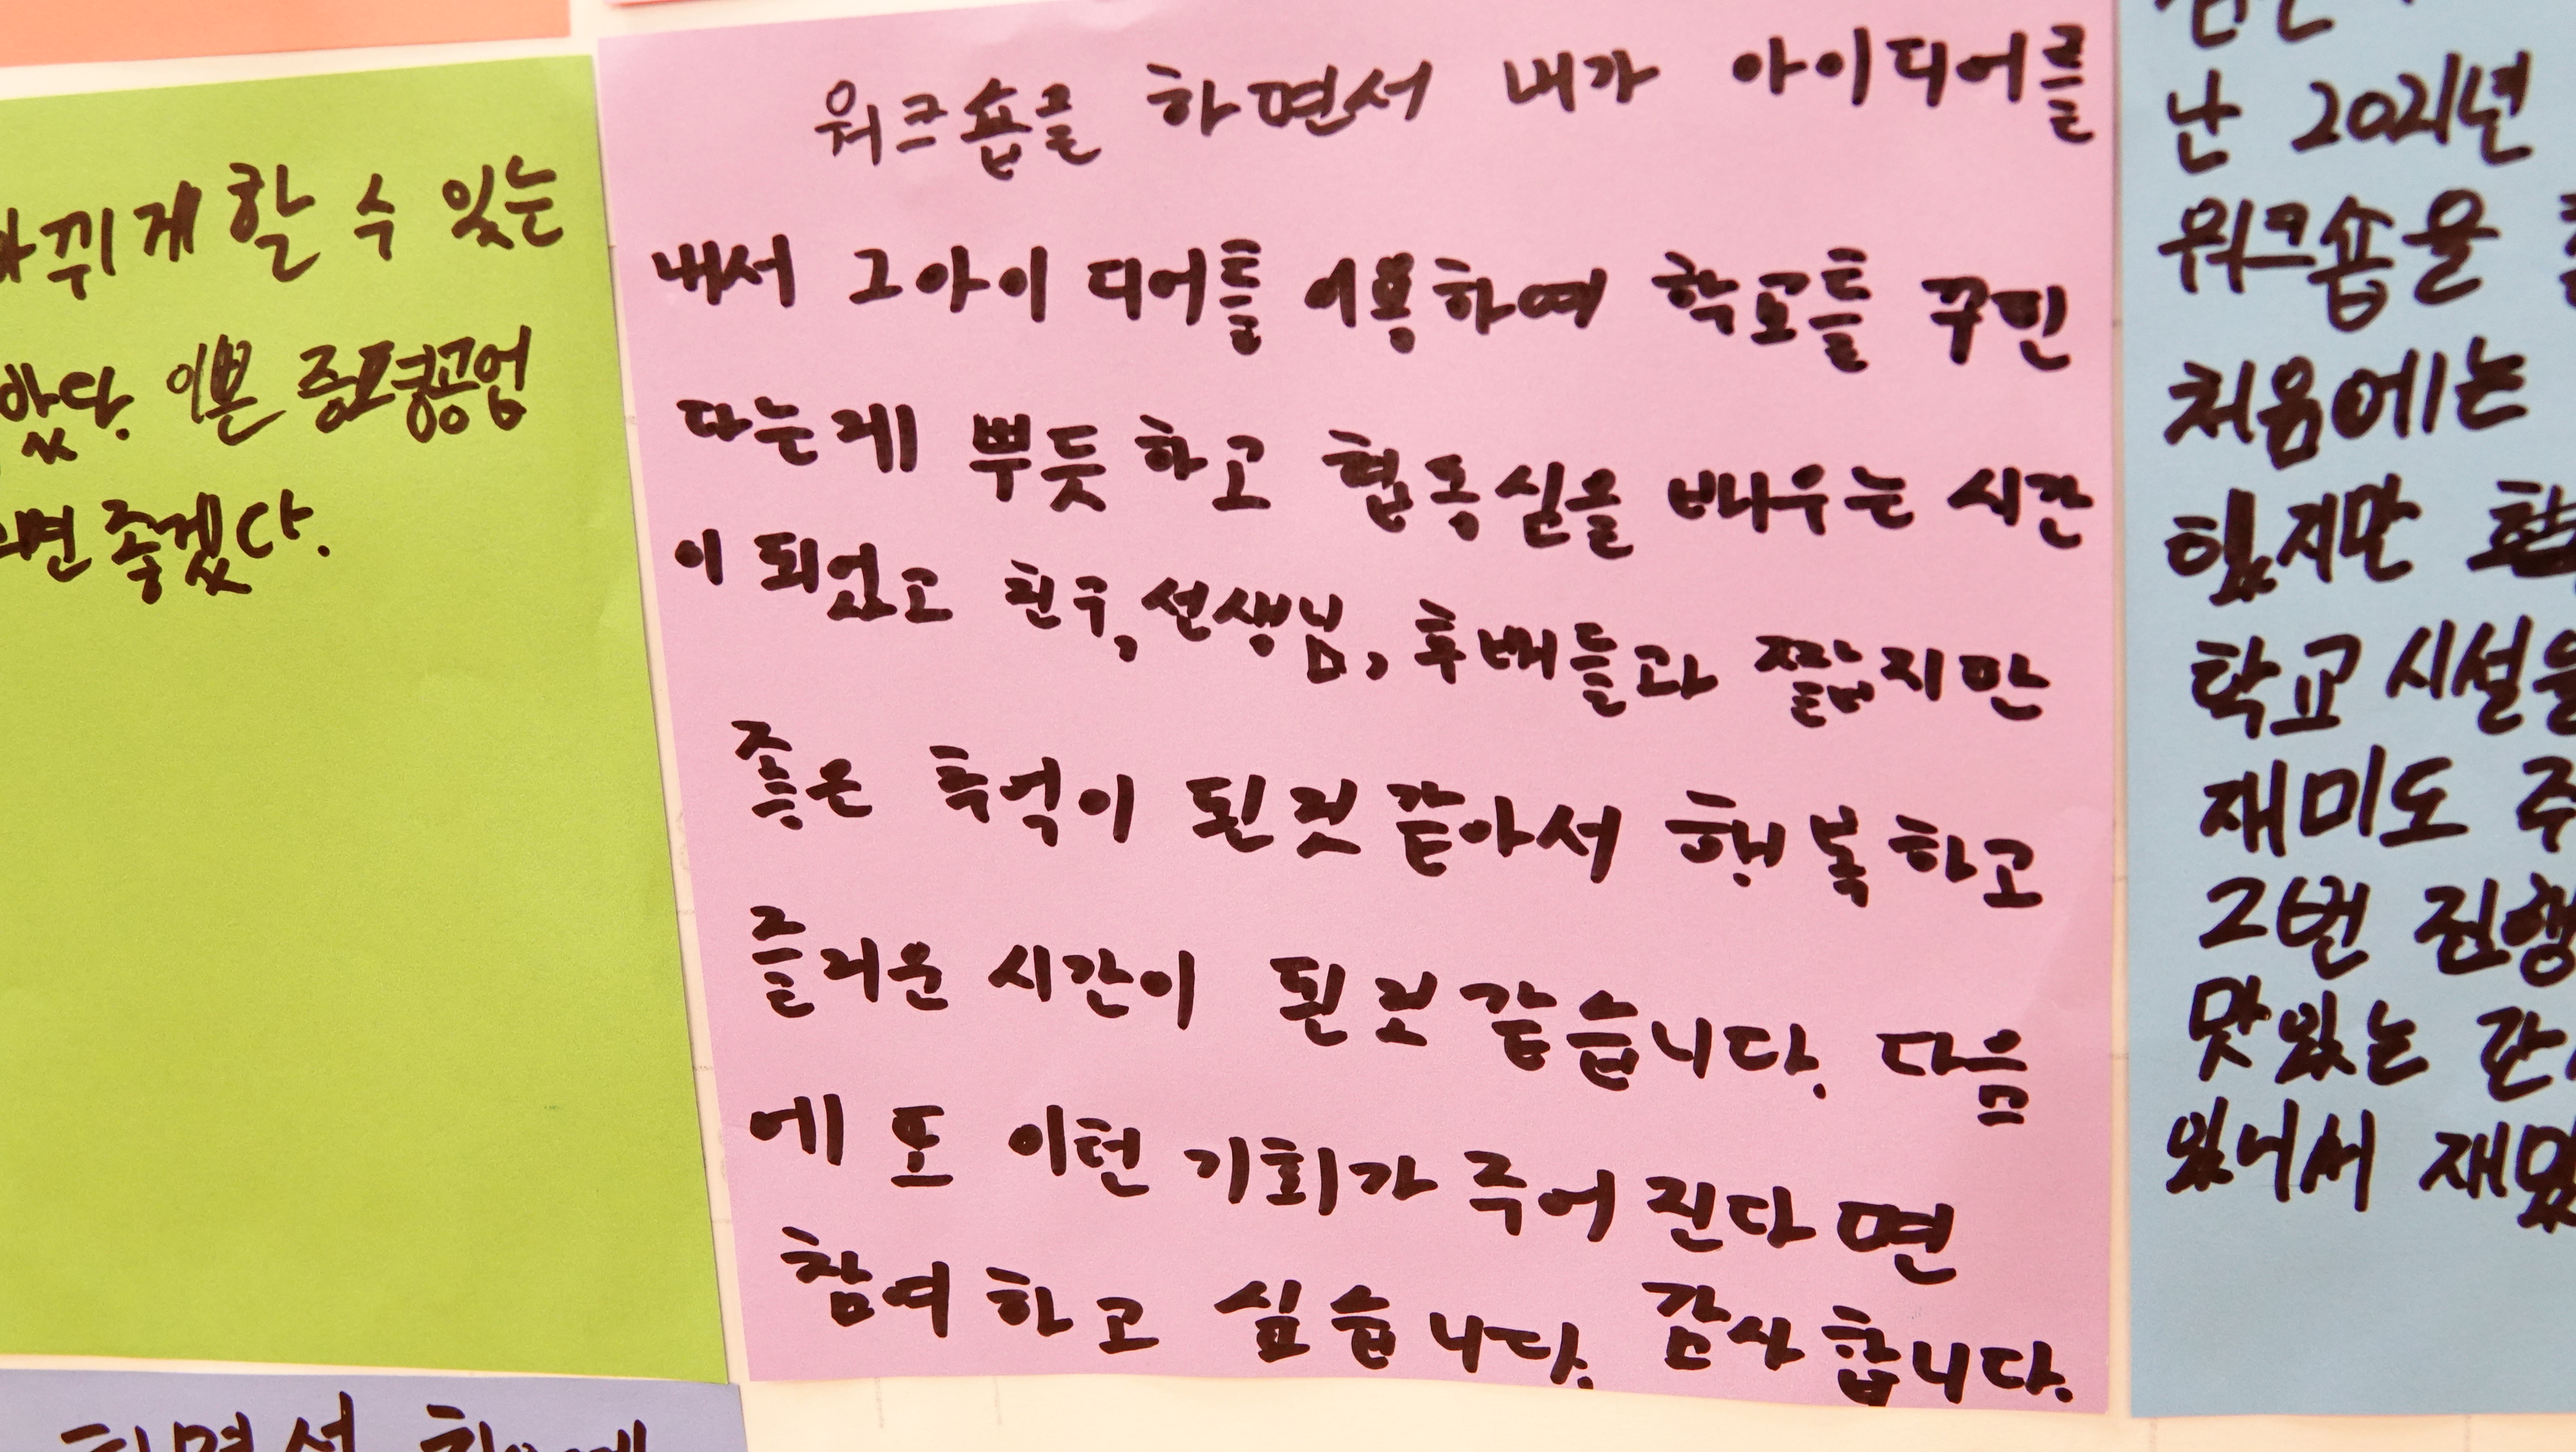 바뀌게 할 수 있는
았다. 이쁜 증평공업
면 좋겠다.
워크숍을 하면서 내가 아이디어를
내서 그아이디어를 이용하여 학교를 꾸민
다는게 뿌듯하고 협동심을 배우는 시간
이 되었고 친구, 선생님, 후배들과 짧지만
좋은 추억이 된것 같아서 행복하고
즐거운 시간이 된것 같습니다. 다음
에 또 이런 기회가 주어 진다면
참여하고 싶습니다. 감사합니다.
난 2021년
워크숍을
처음에는
힜지만
학교 시설을
재미도 주
2번 진행
맛있는 간
있어서 재밌
하면서